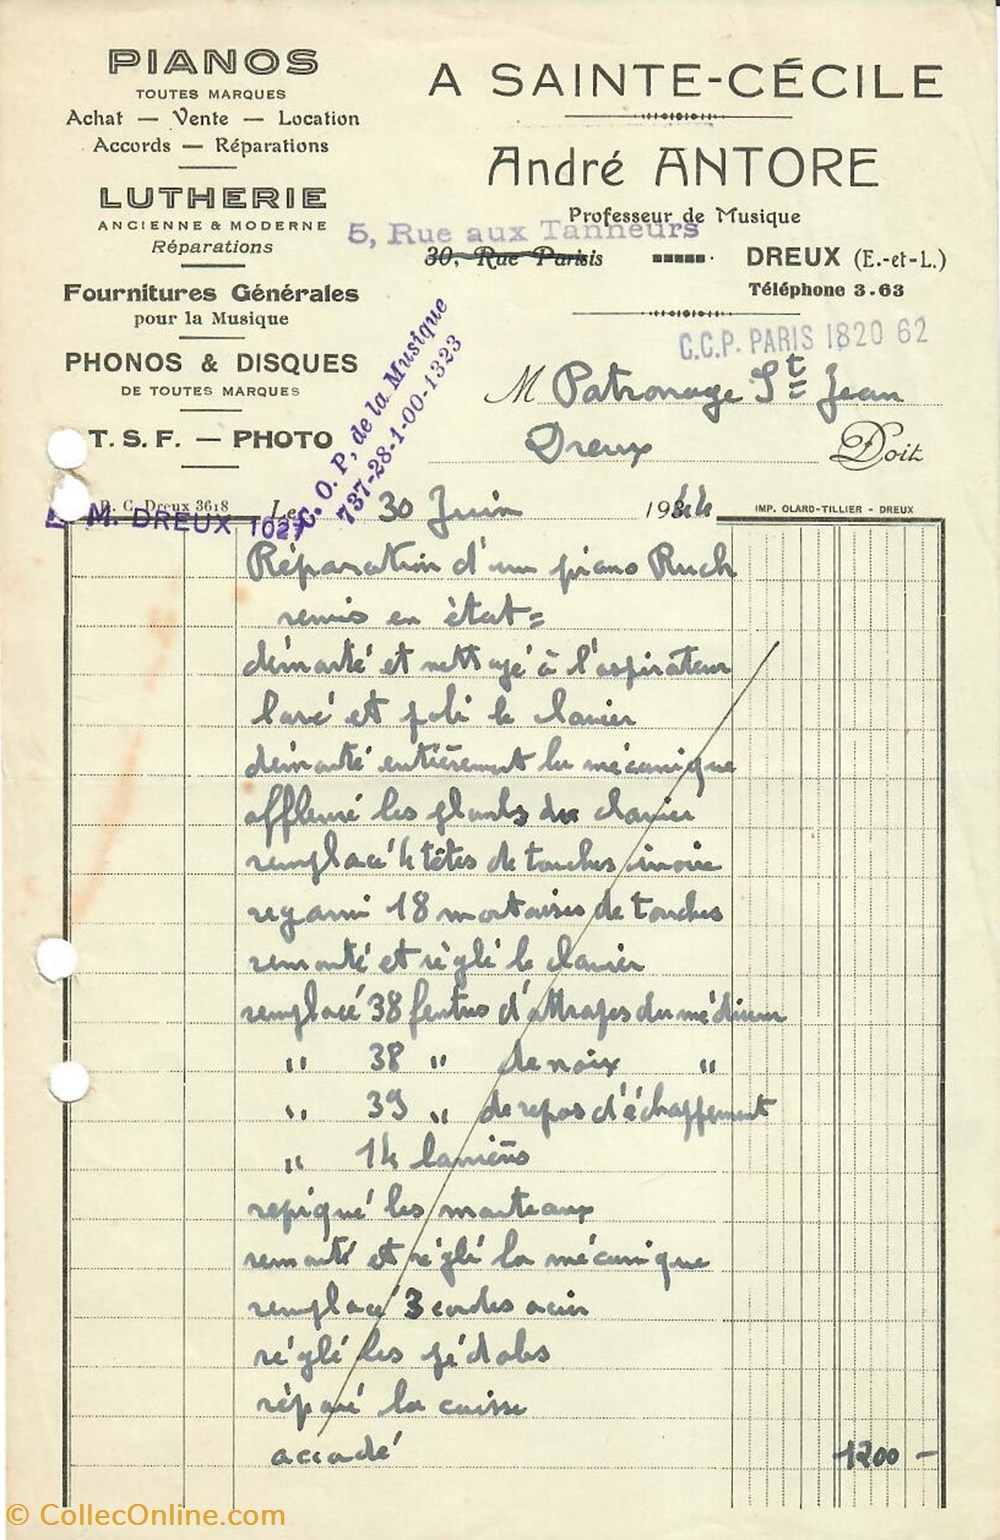 PIANOS
TOUTES MARQUES
Achat — Vente — Location
Accords — Réparations
LUTHERIE
ANCIENNE & MODERNE
Réparations
Fournitures Générales
pour la Musique
PHONOS & DISQUES
DE TOUTES MARQUES
T. S. F. — PHOTO
R. C. Dreux 3618
M. DREUX 1027
C. O. P. de la Musique
737-28-1-00-1323
A SAINTE-CÉCILE
André ANTORE
Professeur de Musique
5, Rue aux Tanneurs
30, Rue Parisis DREUX (E.-et-L.)
Téléphone 3-63
C.C.P. PARIS 1820 62
M Patronage St Jean
Dreux Doit
Le 30 Juin 1944
IMP. OLARD-TILLIER - DREUX
Réparation d'un piano Ruch
remis en état =
démonté et nettoyé à l'aspirateur
lavé et poli le clavier
démonté entièrement la mécanique
affleuré les plombs du clavier
remplacé 4 têtes de touches ivoire
regarni 18 mortaises de touches
remonté et réglé le clavier
remplacé 38 feutres d'attrapes du médium
" 38 " de noix "
" 39 " de repos d'échappement
" 14 lanières
repiqué les marteaux
remonté et réglé la mécanique
remplacé 3 cordes acier
réglé les pédales
réparé la caisse
accordé 1200 —
© CollecOnline.com